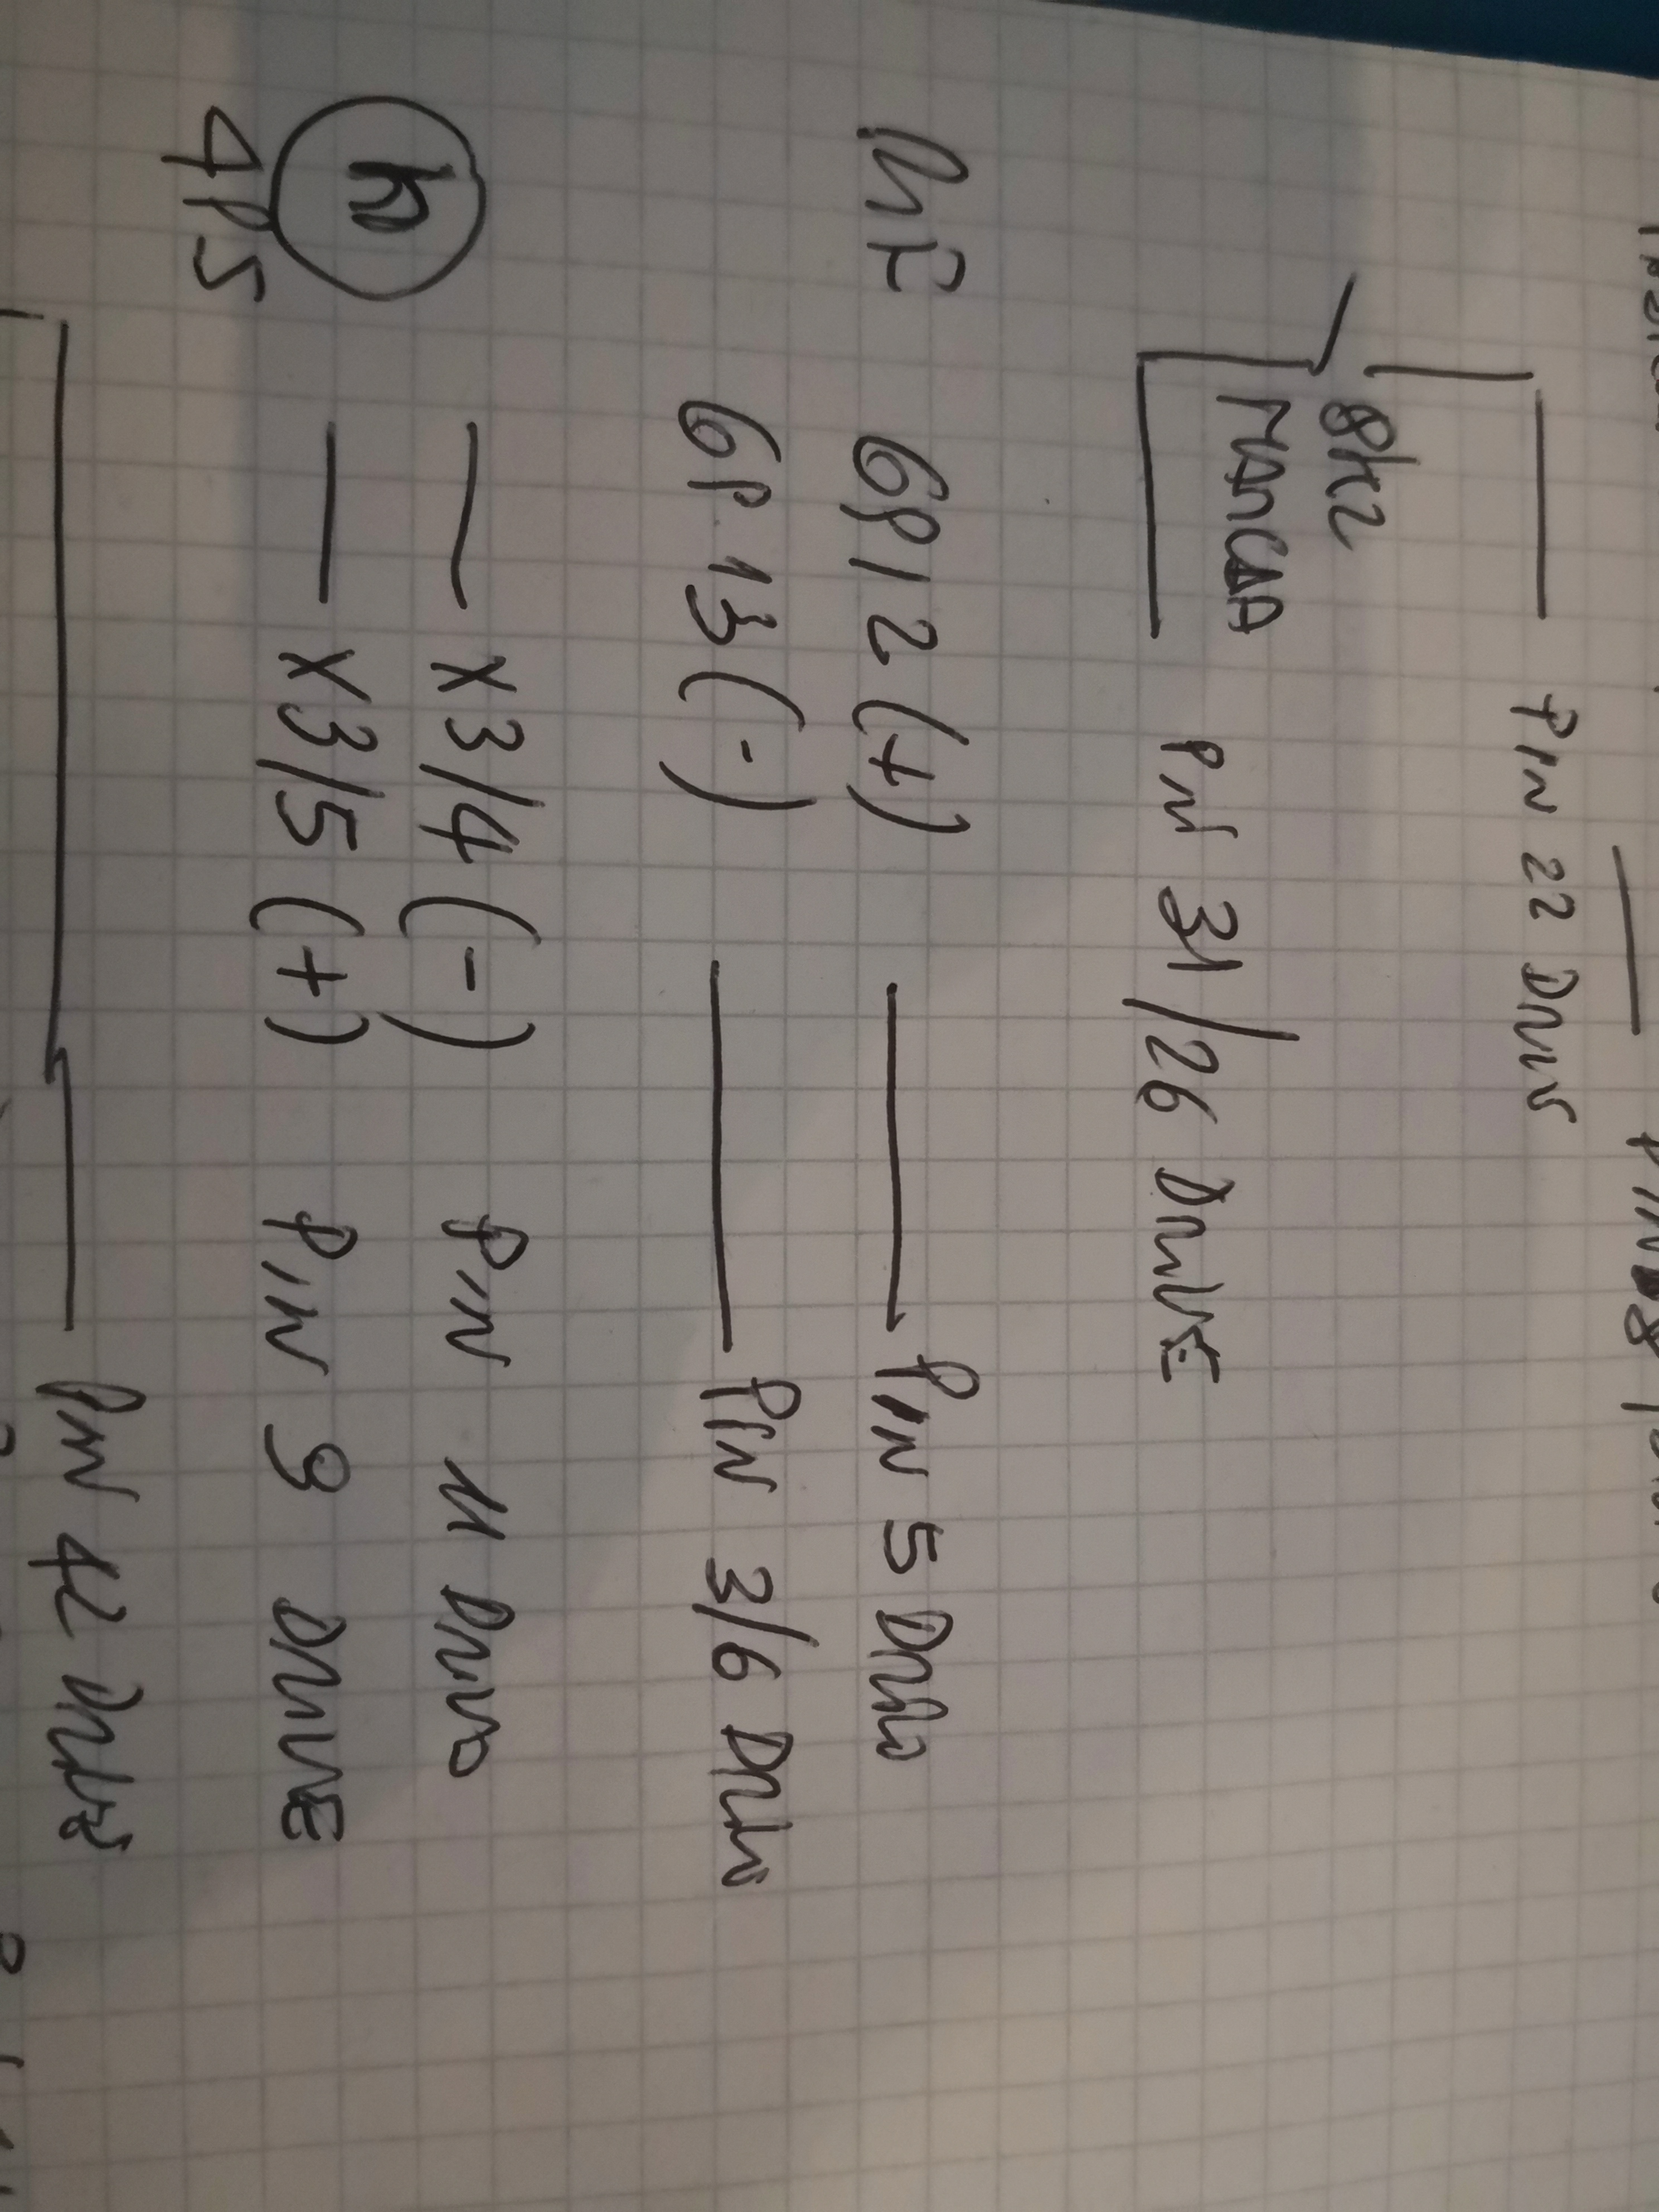 PIN 8
PIN 22 DRIV
8K2
MARCIA
PIN 31/26 DRIVE
RIF 6P12 (+) PIN 5 DRIVE
6P13 (-) PIN 3/6 DRIV
X3/4 (-) PIN 11 DRIVE
X3/5 (+) PIN 9 DRIVE
4P5
PIN 42 DRIVE